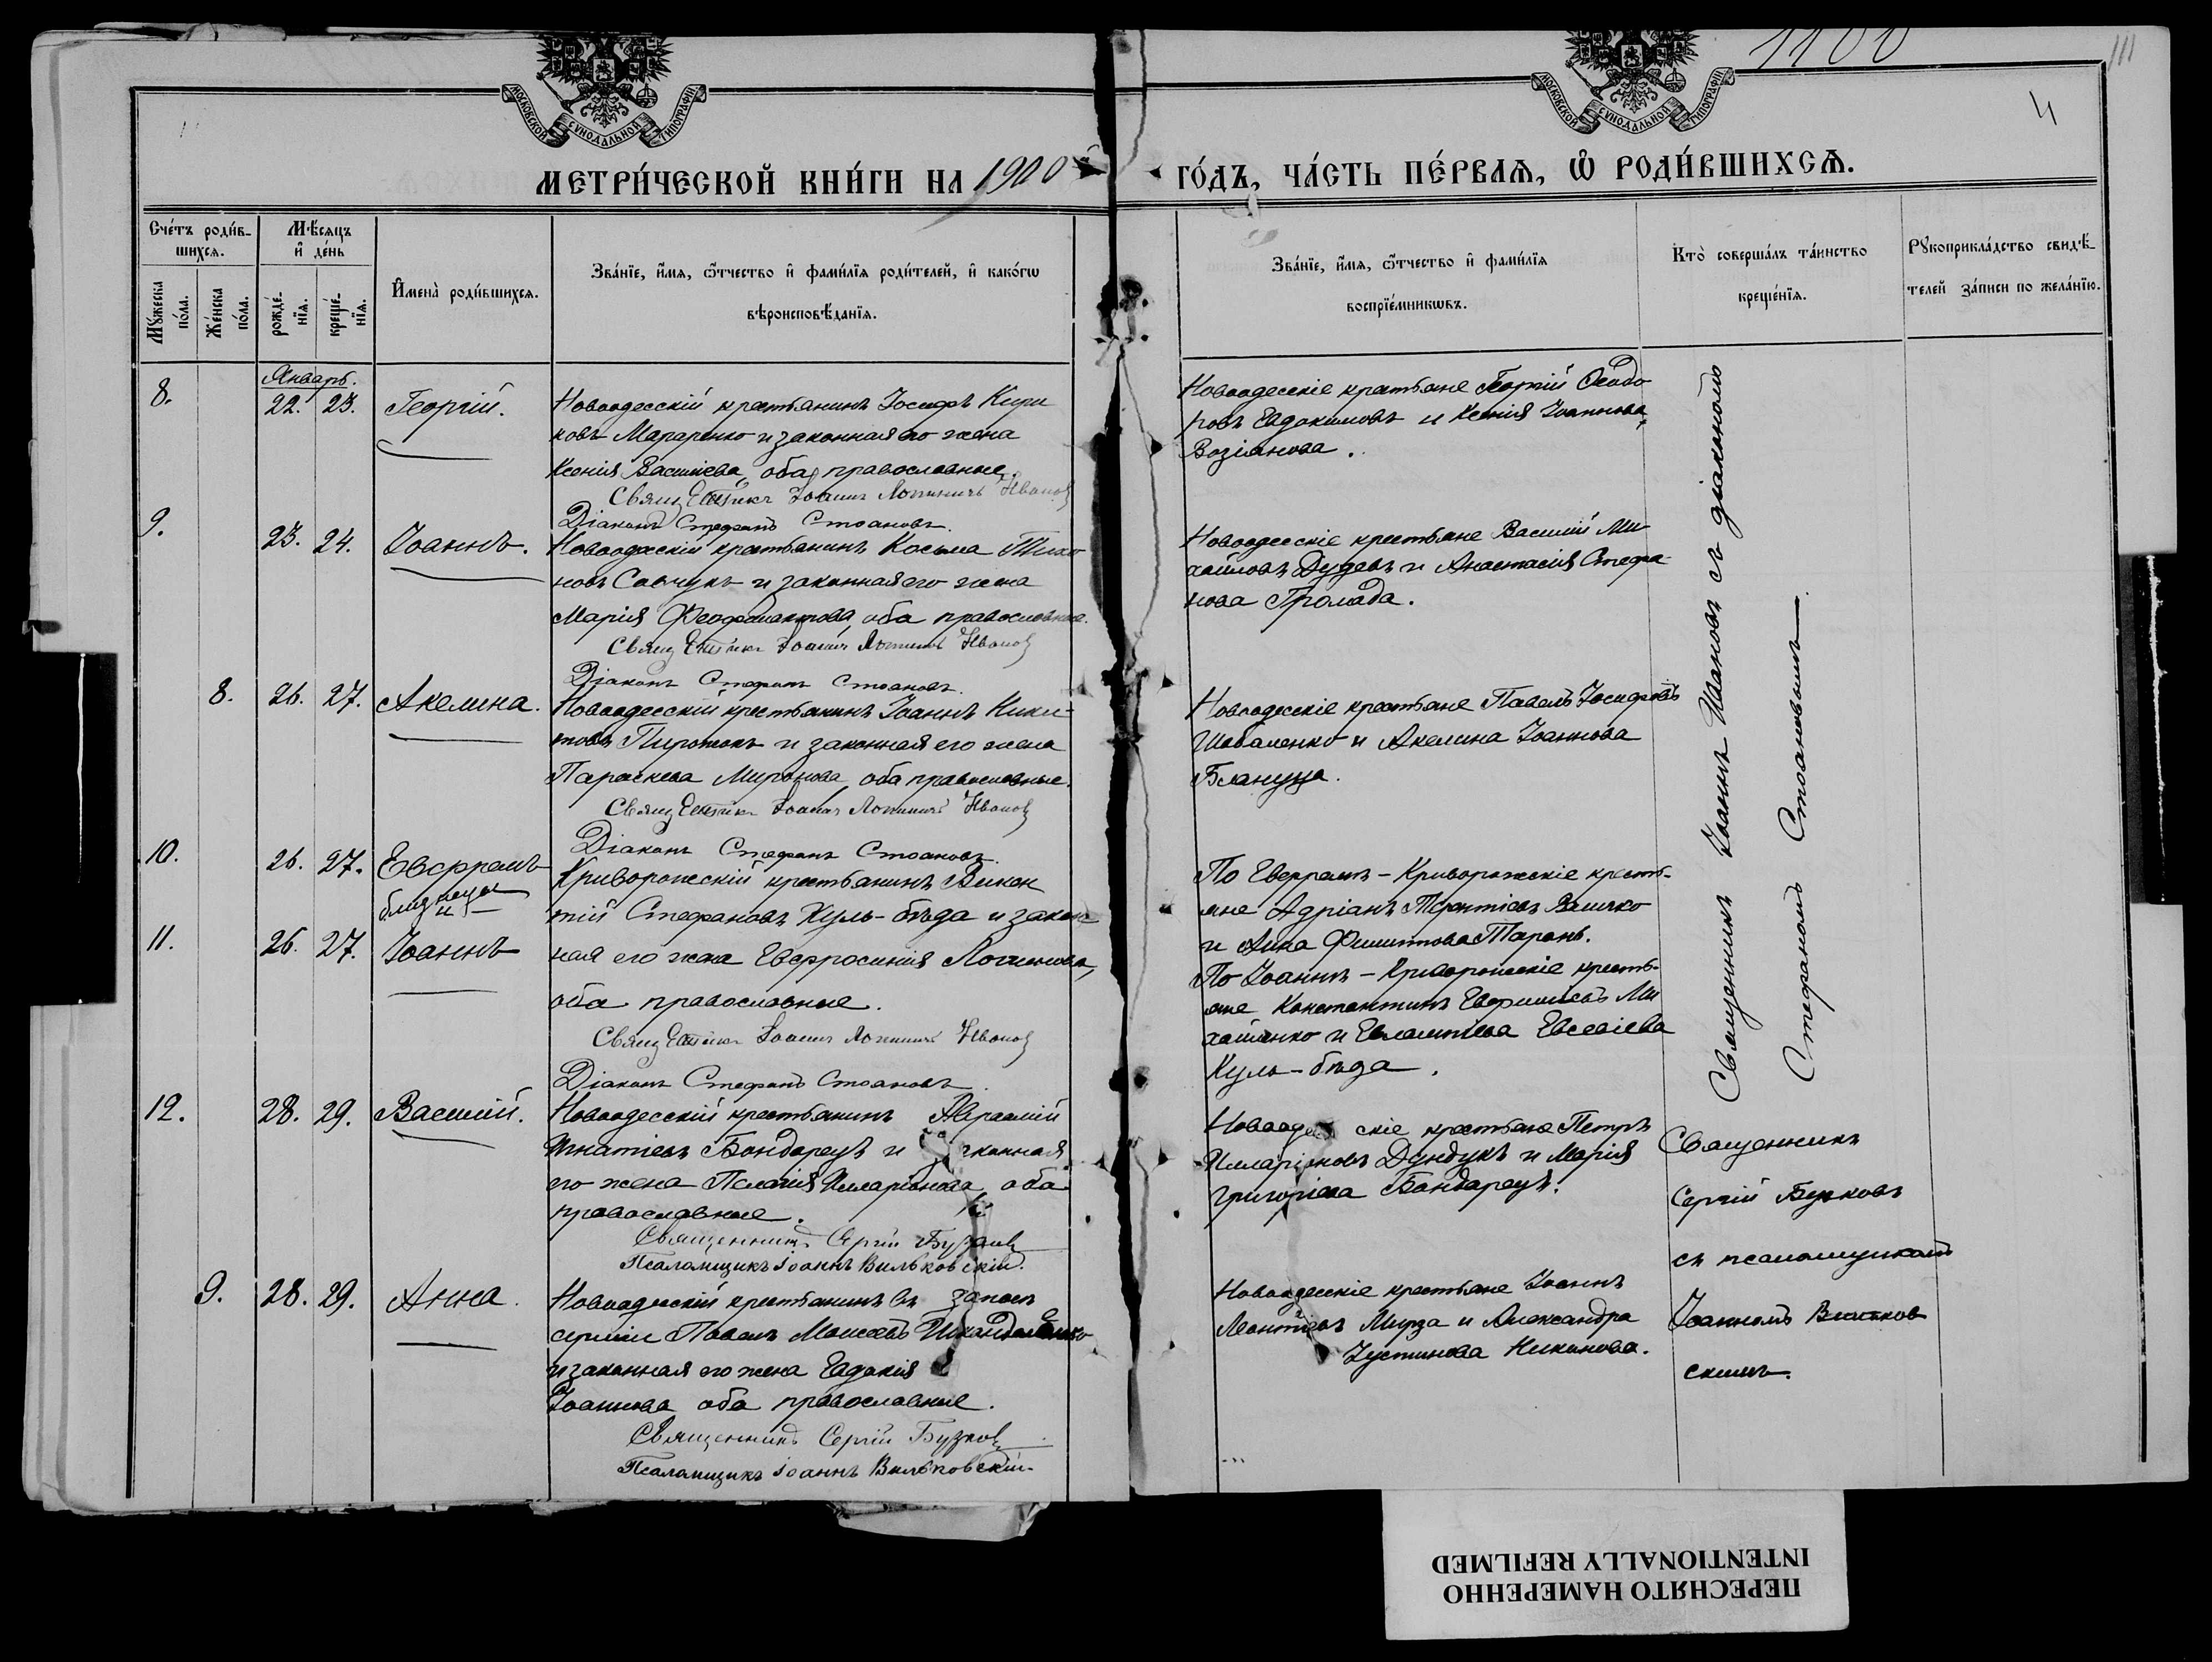 1100
111
4
МОСКОВСКОЙ СѴНОДАЛЬНОЙ ТИПОГРАФІИ
МОСКОВСКОЙ СѴНОДАЛЬНОЙ ТИПОГРАФІИ
МЕТРИ́ЧЕСКОЙ КНИ́ГИ НА 1900
ГО́ДЪ, ЧА́СТЬ ПЕ́РВАѦ, Ѡ҆ РОДИ́ВШИХСѦ.
Сче́тъ роди́в-
шихсѧ.
Мꙋ́жеска по́ла.
Же́нска по́ла.
Мѣ́сѧцъ
и҆ де́нь
рожде́-
нїѧ.
креще́-
нїѧ.
И҆мена̀ роди́вшихсѧ.
Зва́нїе, и҆́мѧ, ѻ҆́тчество и҆ фами́лїѧ роди́телей, и҆ како́гѡ
вѣроисповѣ́данїѧ.
Зва́нїе, и҆́мѧ, ѻ҆́тчество и҆ фами́лїѧ
воспрїе́мникѡвъ.
Кто̀ соверша́лъ та́инство
креще́нїѧ.
Рꙋкоприкла́дство свидѣ́-
телей за́писи по жела́нїю.
Январь.
8. 22. 23. Георгій.
Новоодесскій крестьянинъ Іосифъ Кири
ковъ Мараренко и законная его жена
Ксенія Василіева, оба православные.
Священникъ Іоаннъ Логиничъ Ивановъ
Діаконъ Стефанъ Стояновъ.
Новоодесскіе крестьяне Георгій Ѳеодо
ровъ Евдокимовъ и Ксенія Іоаннова
Возіанова.
9. 23. 24. Іоаннъ.
Новоодесскій крестьянинъ Косьма Тихо
новъ Савчукъ и законная его жена
Марія Феофилактова, оба православные.
Священникъ Іоаннъ Логиничъ Ивановъ
Діаконъ Стефанъ Стояновъ.
Новоодесскіе крестьяне Василій Ми
хайловъ Дудевъ и Анастасія Стефа
нова Громада.
8. 26. 27. Акелина.
Новоодесскій крестьянинъ Іоаннъ Ники-
товъ Пирожокъ и законная его жена
Параскева Миронова оба православные.
Священникъ Іоаннъ Логиничъ Ивановъ
Діаконъ Стефанъ Стояновъ.
Новоодесскіе крестьяне Павелъ Іосифовъ
Шаваленко и Акелина Іоаннова
10. 26. 27. Евфрамъ
близнецы
и
11. 26. 27. Іоаннъ
Криворожскій крестьянинъ Викен
тій Стефановъ Куль-бѣда и закон
ная его жена Евфросинія Логинова,
оба православные.
Священникъ Іоаннъ Логиничъ Ивановъ
Діаконъ Стефанъ Стояновъ.
По Евфрамъ - Криворожскіе кресть-
яне Адріанъ Терентіевъ Величко
и Анна Филиппова Таранъ.
По Іоаннъ - Криворожскіе кресть-
яне Константинъ Евфиміевъ Ми
хайленко и Евлампіева Евсевіева
Куль-бѣда.
Священникъ Іоаннъ Ивановъ съ діакономъ
Стефаномъ Стояновымъ.
12. 28. 29. Василій.
Новоодесскій крестьянинъ Авраамій
Игнатіевъ Бондарецъ и законная
его жена Пелагія Иларіонова, оба
православные.
Священникъ Сергій Бузковъ
Псаломщикъ Іоаннъ Вильковскій.
Новоодесскіе крестьяне Петръ
Иларіоновъ Дундукъ и Марія
Григоріева Бондарецъ.
Священникъ
Сергій Бузковъ
съ псаломщикомъ
Іоанномъ Вильков
скимъ.
9. 28. 29. Анна.
Новоодесскій крестьянинъ въ запасѣ
арміи Павелъ Моисеевъ
и законная его жена Евдокія
Іоаннова оба православные.
Священникъ Сергій Бузковъ
Псаломщикъ Іоаннъ Вильковскій.
Новоодесскіе крестьяне Іоаннъ
Леонтіевъ Мирза и Александра
Іустинова Никонова.
ПЕРЕСНЯТО НАМЕРЕННО
INTENTIONALLY REFILMED